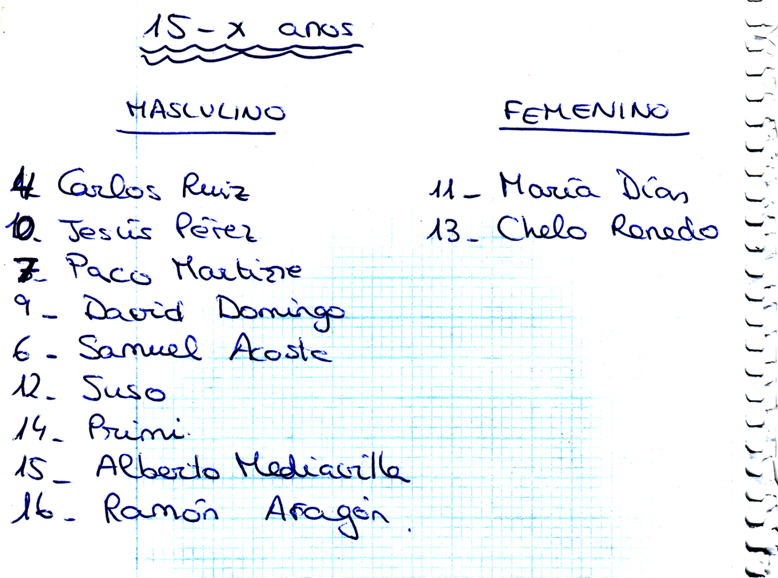 15-x anos
MASCULINO
4 Carlos Ruiz
10- Jesús Pérez
7- Paco Martizre
9- David Domingo
6- Samuel Acosta
12- Suso
14- Primi.
15- Alberto Mediavilla
16- Ramón Aragón.
FEMENINO
11- María Días
13- Chelo Renedo